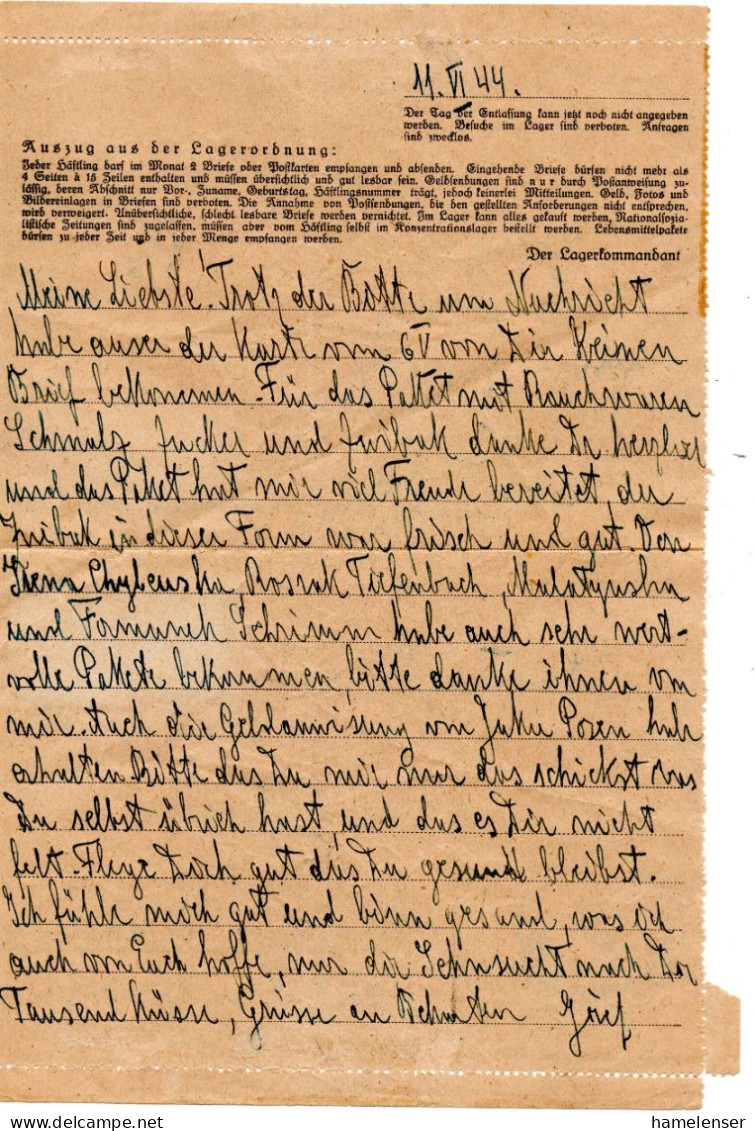 11. VI 44.
Der Tag der Entlassung kann jetzt noch nicht angegeben
werden. Besuche im Lager sind verboten. Anfragen
sind zwecklos.
Auszug aus der Lagerordnung:
Jeder Häftling darf im Monat 2 Briefe oder Postkarten empfangen und absenden. Eingehende Briefe dürfen nicht mehr als
4 Seiten à 15 Zeilen enthalten und müssen übersichtlich und gut lesbar sein. Geldsendungen sind nur durch Postanweisung zu-
lässig, deren Abschnitt nur Vor-, Zuname, Geburtstag, Häftlingsnummer trägt, jedoch keinerlei Mitteilungen. Geld, Fotos und
Bildereinlagen in Briefen sind verboten. Die Annahme von Postsendungen, die den gestellten Anforderungen nicht entsprechen,
wird verweigert. Unübersichtliche, schlecht lesbare Briefe werden vernichtet. Im Lager kann alles gekauft werden, Nationalsozia-
listische Zeitungen sind zugelassen, müssen aber vom Häftling selbst im Konzentrationslager bestellt werden. Lebensmittelpakete
dürfen zu jeder Zeit und in jeder Menge empfangen werden.
Der Lagerkommandant
Meine Liebste! Trotz der Bitte um Nachricht
habe auser der Karte vom 6 V von Dir Keinen
Brief bekommen. Für das Paket mit Rauchwaren
Schmalz Zucker und Zwibak danke Dir
und das Paket hat mir viel Freude bereitet, der
Zwibak in dieser Form war frisch und gut. Von
Irena Tiefenbach,
und Schrimm habe auch sehr wert-
volle Pakete bekommen, bitte danke ihnen von
mir. Auch die Geldanwisung von Posen habe
erhalten Bitte das Du mir nur das schickst was
Du selbst übrich hast, und das es Dir nicht
felt. Flege Dich gut das Du gesund bleibst.
Ich fühle mich gut und binn gesund, was ich
auch von Euch hoffe, nur die Sehnsucht nach Dir
Tausend Küsse, Grüsse an
hamelenser